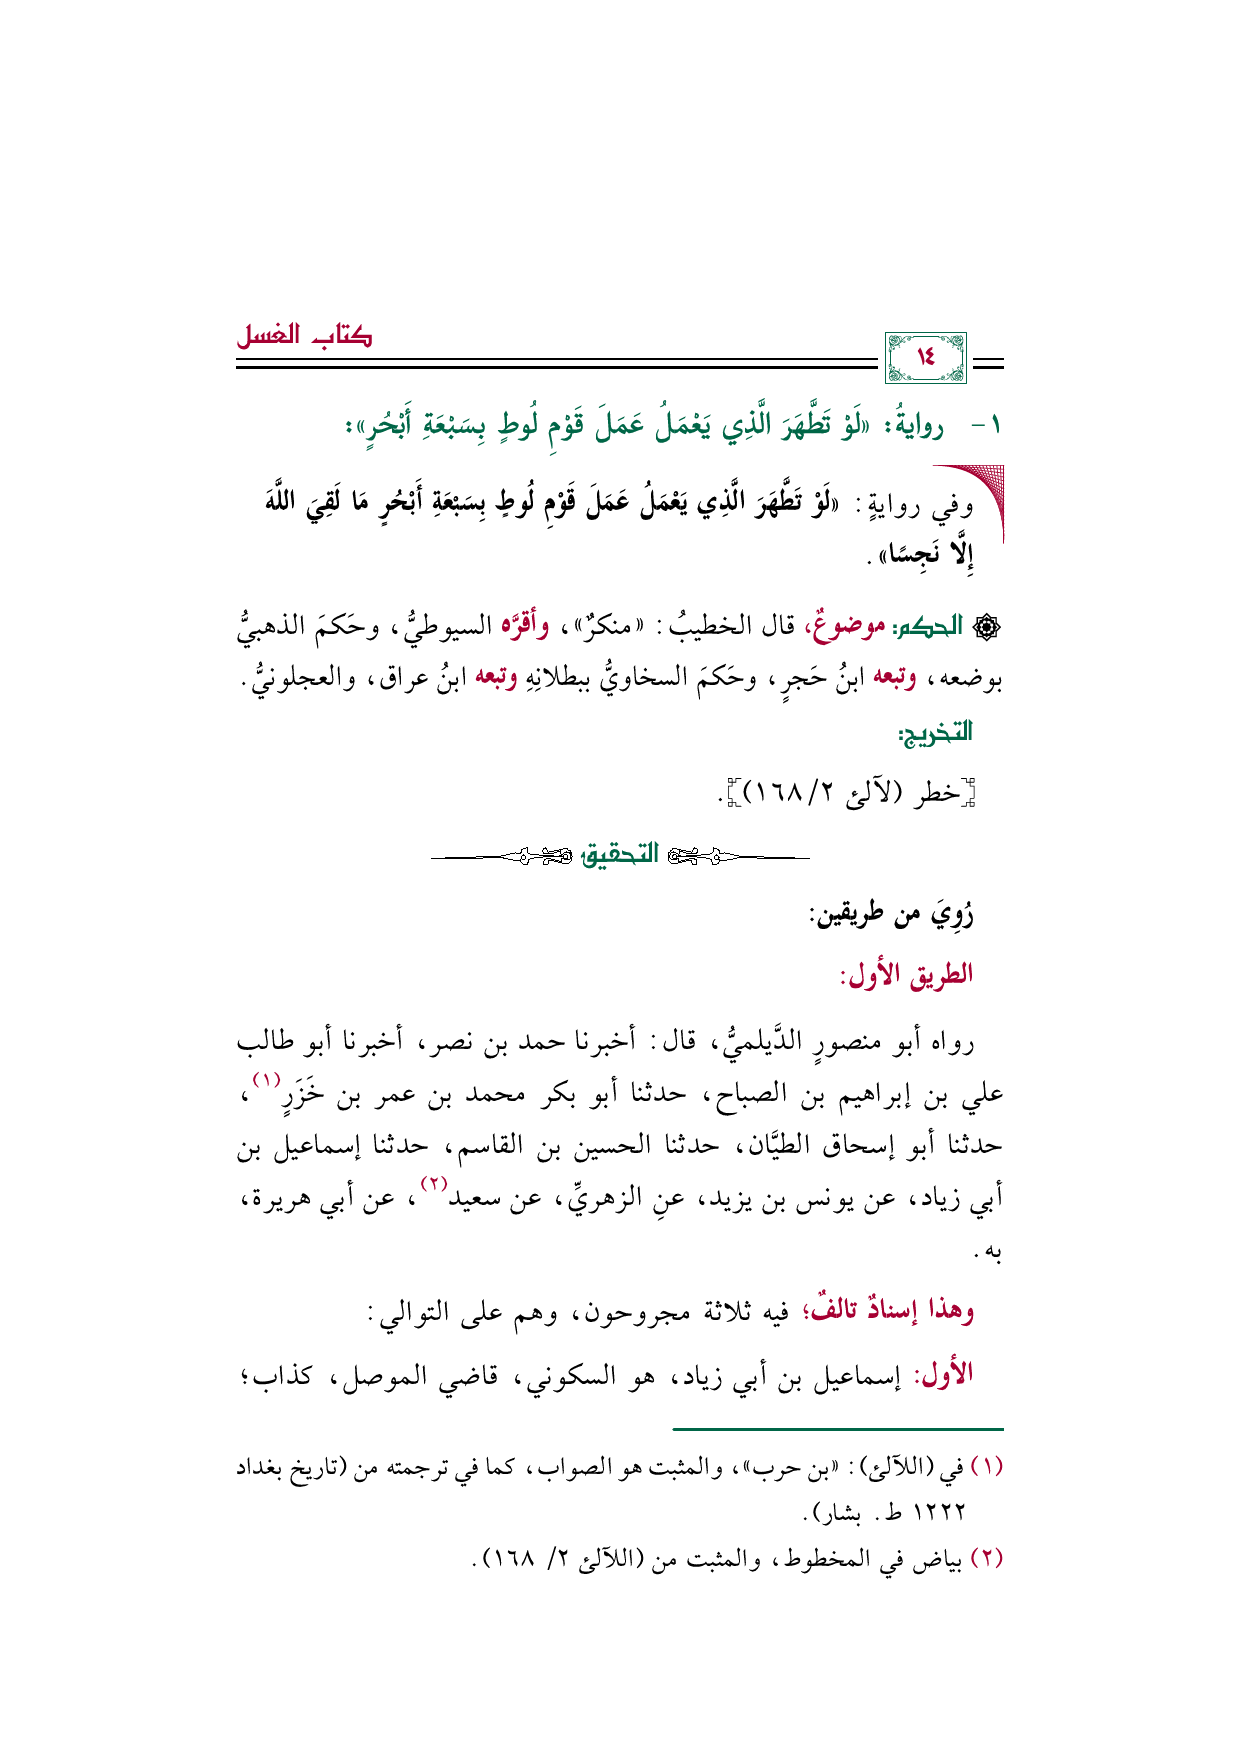 كتاب الغسل
١٤
١- روايةُ: «لَوْ تَطَّهَرَ الَّذِي يَعْمَلُ عَمَلَ قَوْمِ لُوطٍ بِسَبْعَةِ أَبْحُرٍ»:
وفي روايةٍ: «لَوْ تَطَّهَرَ الَّذِي يَعْمَلُ عَمَلَ قَوْمِ لُوطٍ بِسَبْعَةِ أَبْحُرٍ مَا لَقِيَ اللَّهَ
إِلَّا نَجِسًا».
الحكم: موضوعٌ، قال الخطيبُ: «منكرٌ»، وأقرَّه السيوطيُّ، وحَكمَ الذهبيُّ
بوضعه، وتبعه ابنُ حَجرٍ، وحَكمَ السخاويُّ ببطلانِهِ وتبعه ابنُ عراق، والعجلونيُّ.
التخريج:
[خطر (لآلئ ٢/ ١٦٨)].
التحقيق
رُوِيَ من طريقين:
الطريق الأول:
رواه أبو منصورٍ الدَّيلميُّ، قال: أخبرنا حمد بن نصر، أخبرنا أبو طالب
علي بن إبراهيم بن الصباح، حدثنا أبو بكر محمد بن عمر بن خَزَرٍ(١)،
حدثنا أبو إسحاق الطيَّان، حدثنا الحسين بن القاسم، حدثنا إسماعيل بن
أبي زياد، عن يونس بن يزيد، عنِ الزهريِّ، عن سعيد(٢)، عن أبي هريرة،
به.
وهذا إسنادٌ تالفٌ؛ فيه ثلاثة مجروحون، وهم على التوالي:
الأول: إسماعيل بن أبي زياد، هو السكوني، قاضي الموصل، كذاب؛
(١) في (اللآلئ): «بن حرب»، والمثبت هو الصواب، كما في ترجمته من (تاريخ بغداد
١٢٢٢ ط. بشار).
(٢) بياض في المخطوط، والمثبت من (اللآلئ ٢/ ١٦٨).